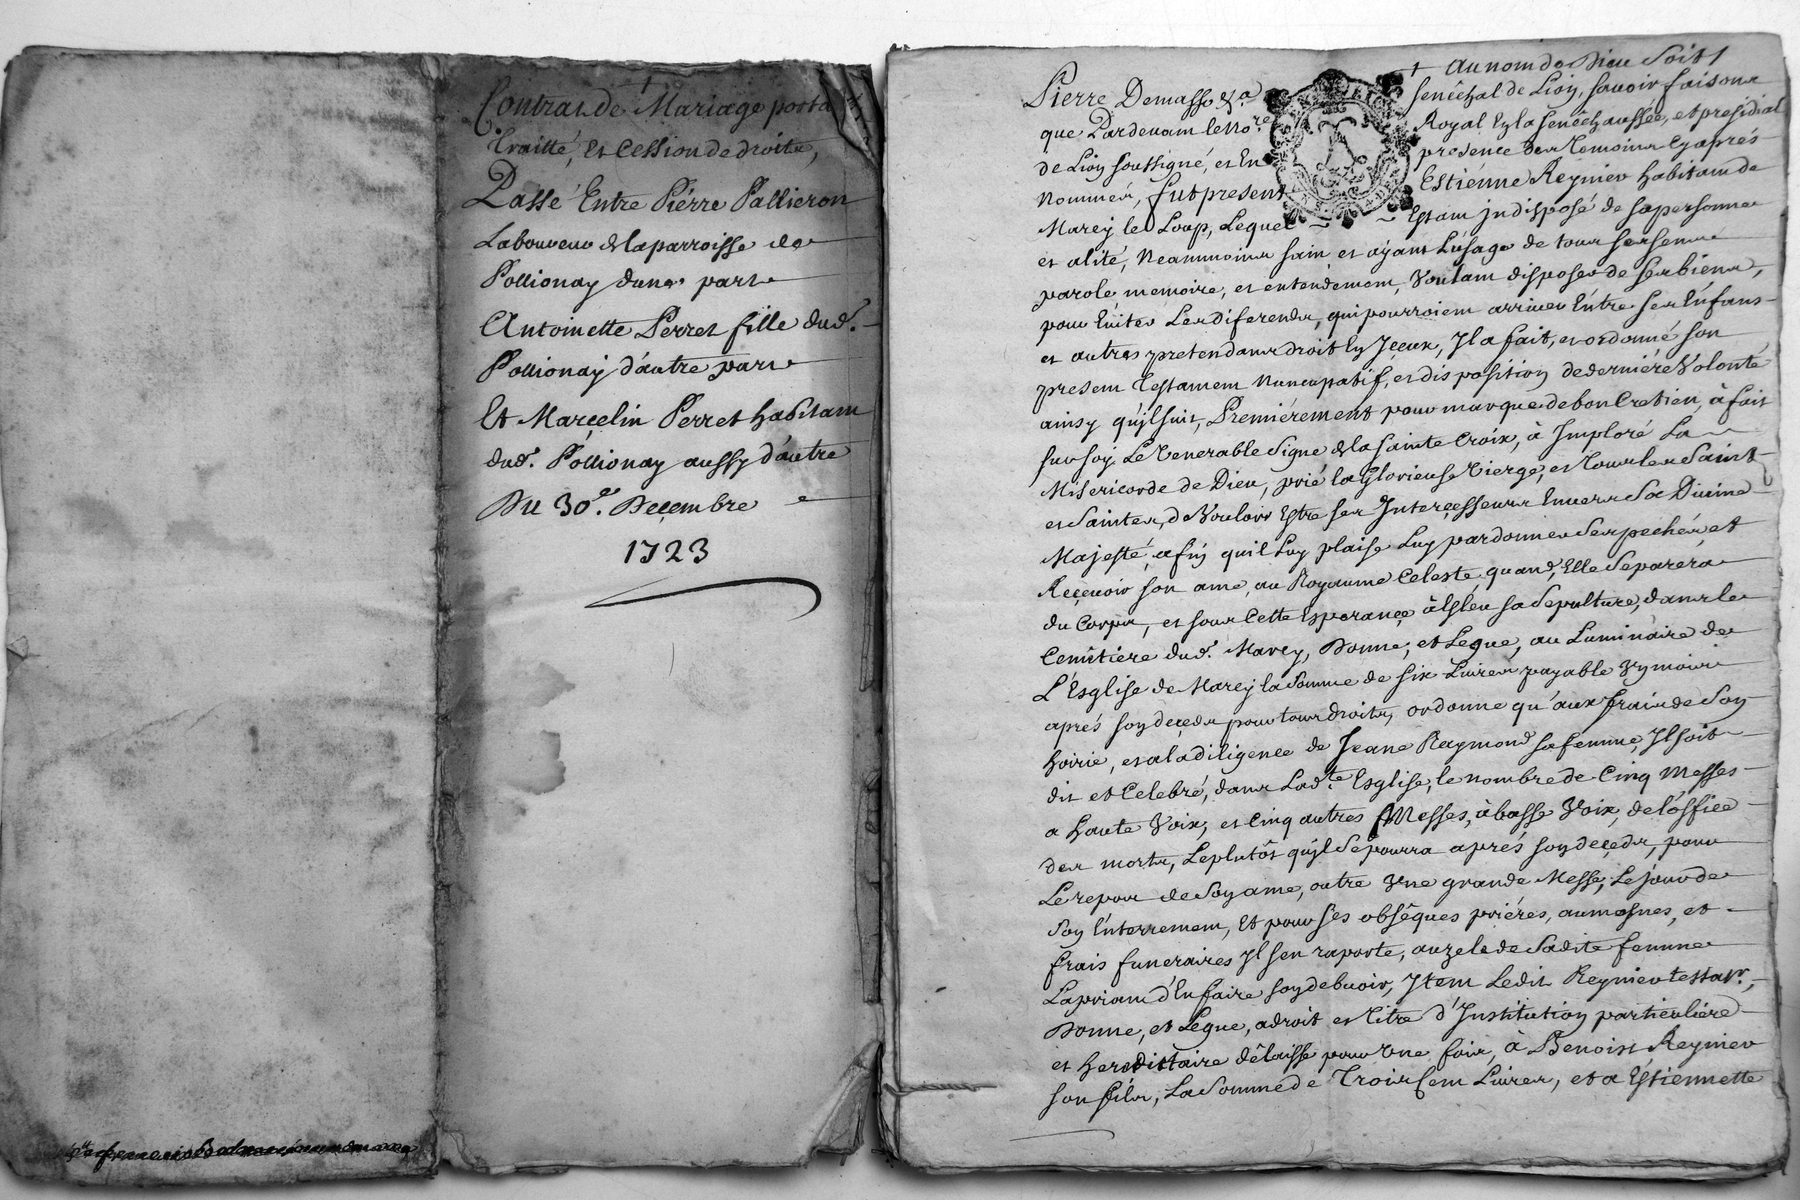 Contrat de Mariage porta
Traitté, et Cession de droits,
Passé Entre Pierre Pallieron
Laboureur de la parroisse de
Pollionay dune part
Antoinette Perret fille dud.
Pollionay d'autre part
Et Marcelin Perret habitant
dud. Pollionay aussy d'autre
Du 30e. Decembre
1723
Au nom de Dieu Soit
Pierre Demasso &a senéchal de Lion, sçavoir faisons
que Pardevant le Nore Royal En la senéchaussée, et présidial
de Lion soussigné, et En presence des Temoins Cy aprés
Nommés, fut present Estienne Reynier habitant de
Marcy le Loup, Lequel Estant jndisposé de sa personne
et alité, Neantmoins sain et ayant L'usage de tous ses sens
parole, memoire, et entendement, Voulant disposer de ses biens,
pour Eviter Les diferends, qui pourroient arriver Entre ses Enfans
et autres pretendans droit En Jçeux, Jl a fait, et ordonné son
present Testament Nuncupatif, et disposition de derniére Volonté
ainsy qu'jl suit, Premiérement pour marque de bon Cretien, à fait
sur soy Le Venerable Signe de la Sainte Croix, à Jmploré La
Misericorde de Dieu, prié la Glorieuse Vierge, et Tous les Saints
et Saintes, de Vouloir Estre ses Jntercesseurs Envers Sa Divine
Majesté, afin quil Luy plaise Luy pardonner Ses pechés et
Recevoir son ame, au Royaume Celeste quand, Elle Separéra
du Corps, et sous Cette Esperance à Esleu sa Sepulture, dans le
Cemitiere dud. Marcy, Donne, et Legue, au Luminaire de
L'Esglise de Marcy la Somme de six Livres payable Vn mois
aprés son decedz pour tous droits, ordonne qu'aux frais de Son
hoirie, et a la diligence de Jeane Raymond sa femme, Jl soit
dit et Celebré, dans Ladte. Esglise, le nombre de Cinq Messes
a haute Voix, et Cinq autres Messes, à basse Voix, de l'office
des morts, Le plutôt qu'jl Se pourra aprés son decedz, pour
Le repos de Son ame, outre Vne grande Messe, Le jour de
Son Enterrement, Et pour Ses obséques priéres, aumosnes, et
frais funeraires Jl s'en raporte, au zele de Sadite femme
La priant d'En faire son debvoir, Jtem Ledit Reynier testatr.,
Donne, et Legue, a droit et Titre d'Institution particuliére
et hereditaire délaisse pour Une fois, à Benoist Reynier
son fils, La Somme de Trois Cent Livres, et a Estiennette